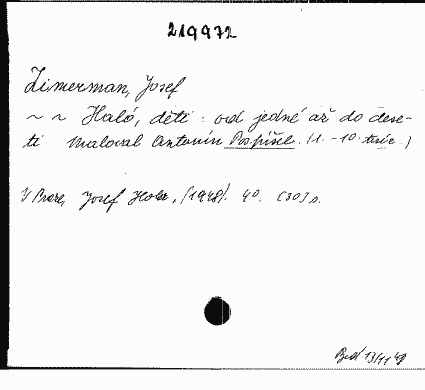 219972
Zimerman, Josef
~ ~ Haló, děti : od jedné až do dese-
ti Maloval Antonín Pospíšil. (1. - 10. tisíc.)
V Praze, Josef Hokr, [1948]. 4°. [30] s.
13/11 49